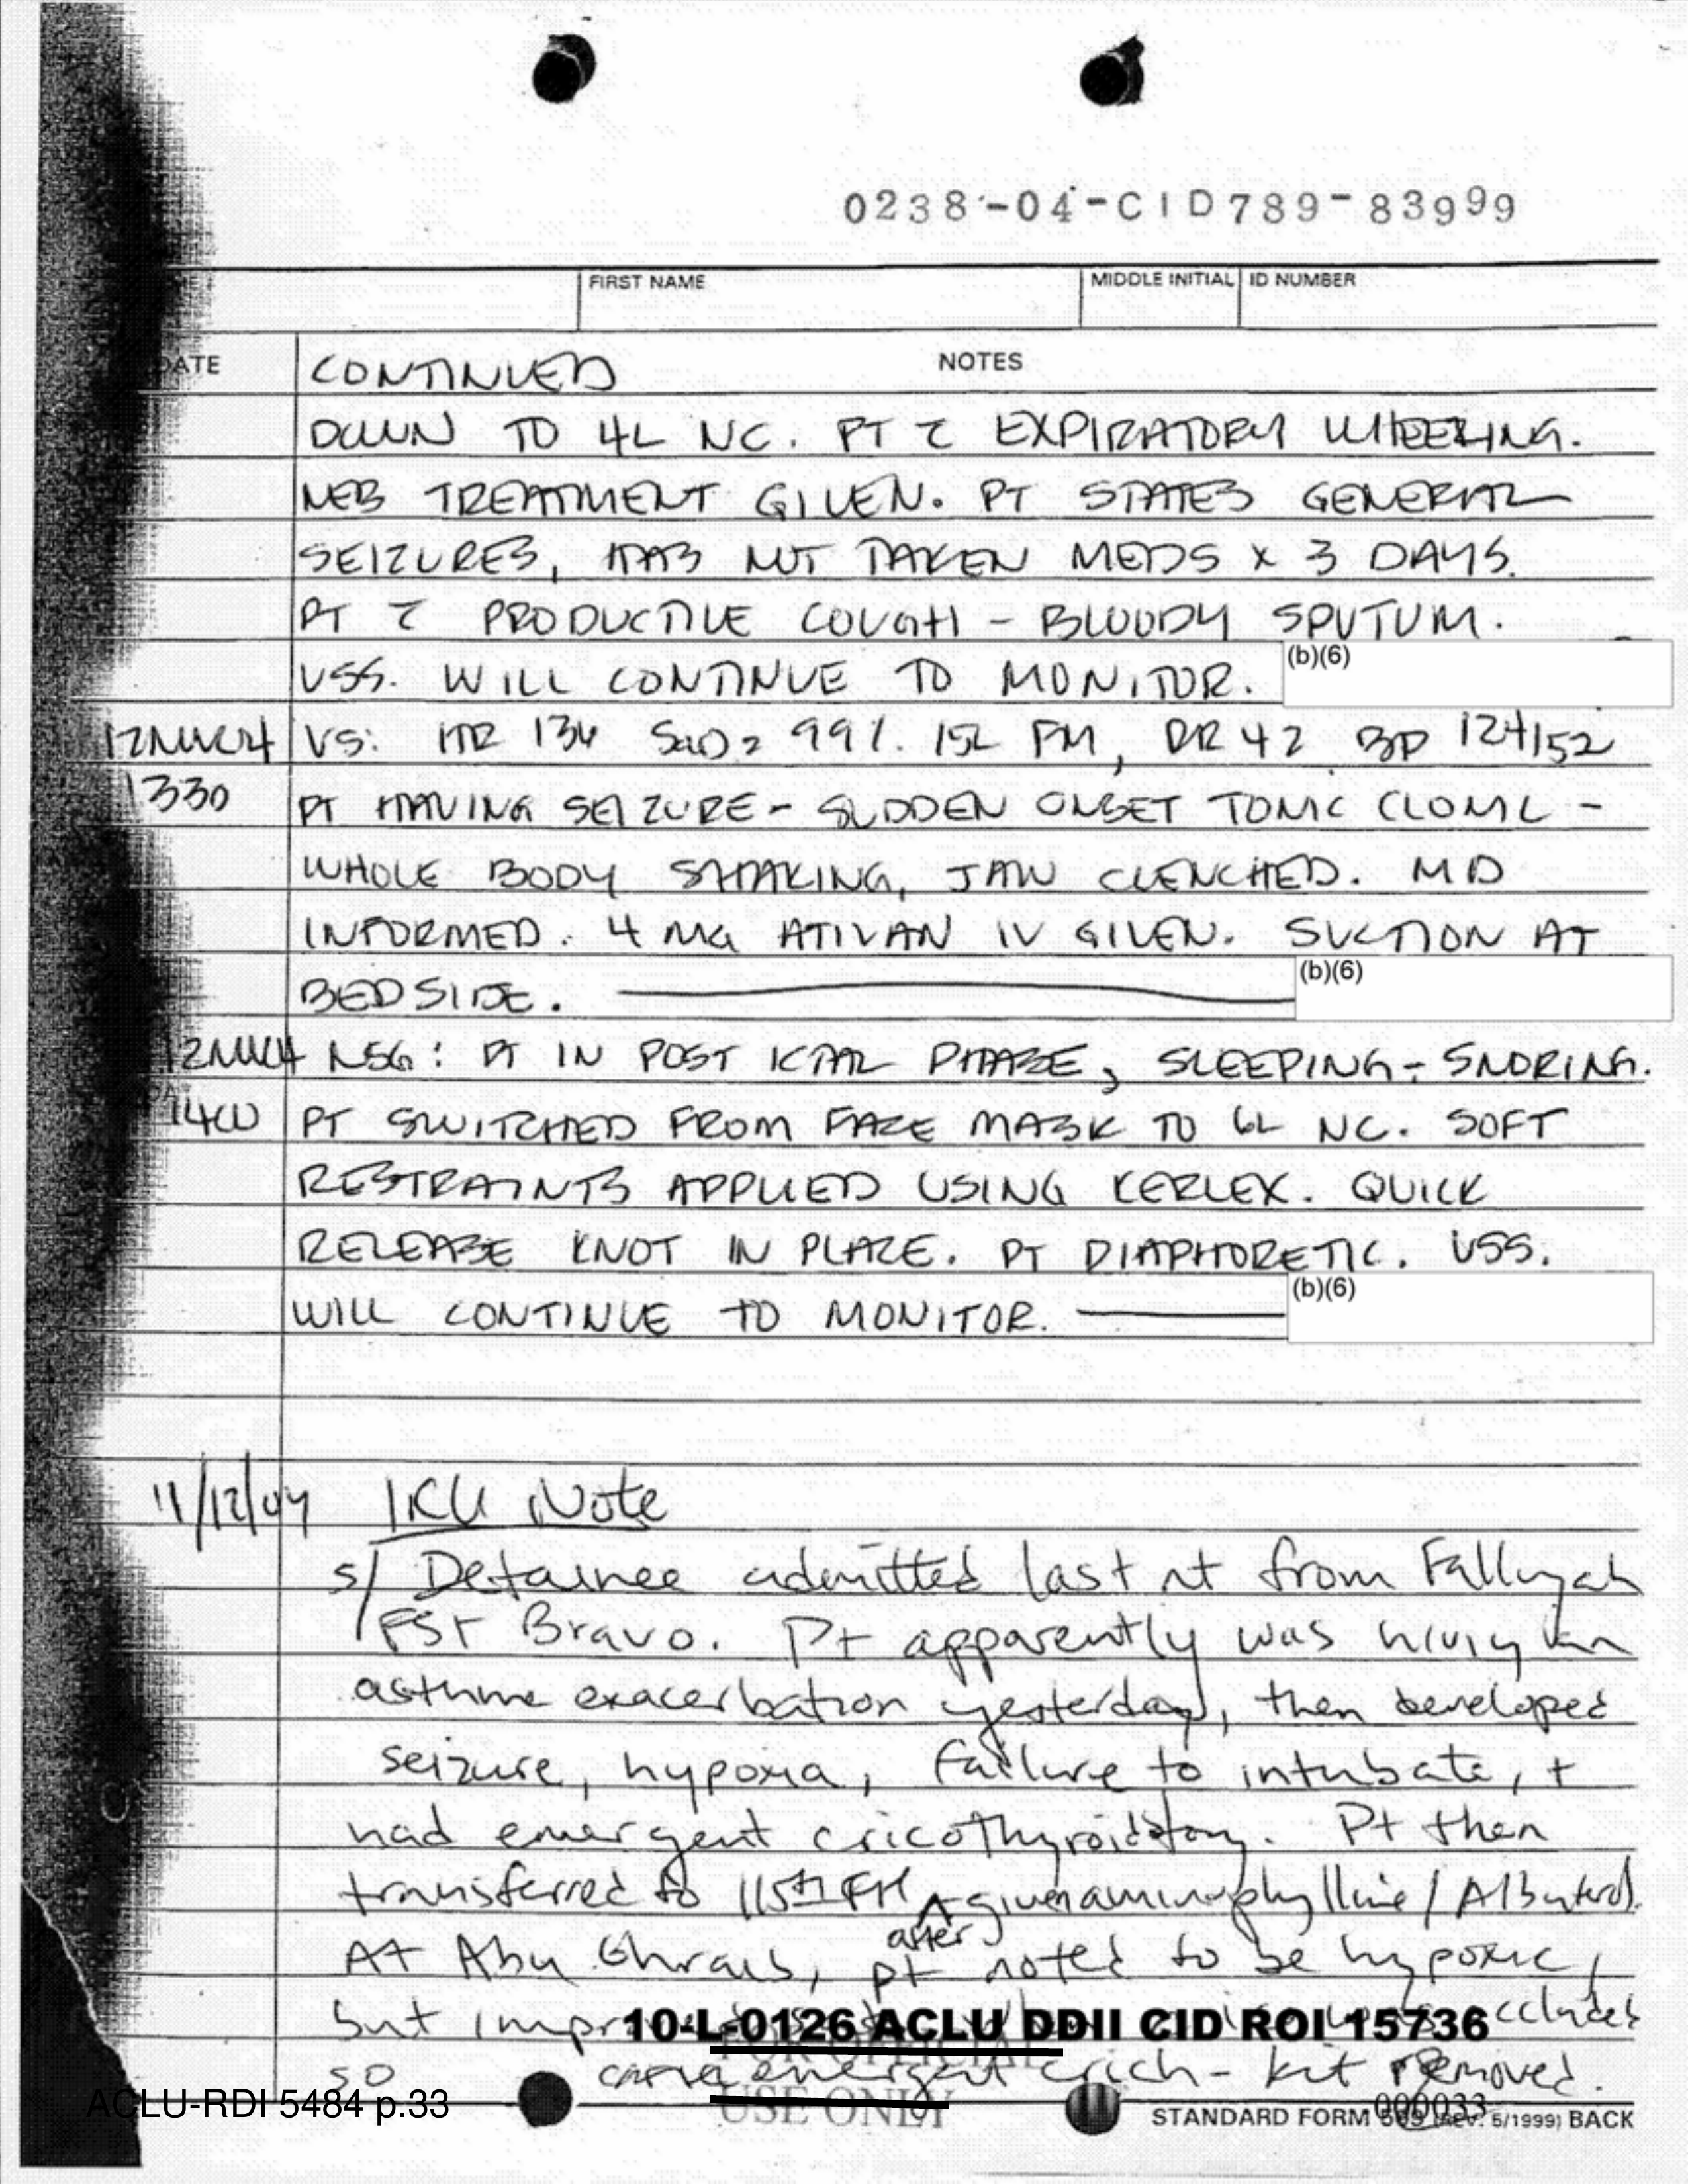 0238-04-CID789-83999
FIRST NAME MIDDLE INITIAL ID NUMBER
DATE CONTINUED NOTES
DOWN TO 4L NC. PT c̄ EXPIRATORY WHEEZING.
NEB TREATMENT GIVEN. PT STATES GENERAL
SEIZURES, HAS NOT TAKEN MEDS x 3 DAYS.
PT c̄ PRODUCTIVE COUGH - BLOODY SPUTUM.
VSS. WILL CONTINUE TO MONITOR. (b)(6)
VS: HR 134 SaO2 99%. 15L FM, RR 42 BP 124/52
1330 PT HAVING SEIZURE - SUDDEN ONSET TONIC CLONIC -
WHOLE BODY SHAKING, JAW CLENCHED. MD
INFORMED. 4 MG ATIVAN IV GIVEN. SUCTION AT
BEDSIDE. (b)(6)
NSG: PT IN POST ICTAL PHASE, SLEEPING - SNORING.
1400 PT SWITCHED FROM FACE MASK TO 6L NC. SOFT
RESTRAINTS APPLIED USING KERLEX. QUICK
RELEASE KNOT IN PLACE. PT DIAPHORETIC. VSS.
WILL CONTINUE TO MONITOR. (b)(6)
11/12/04 ICU Note
S/ Detainee admitted last nt from Fallujah
FST Bravo. Pt apparently was having an
asthma exacerbation yesterday, then developed
seizure, hypoxia, failure to intubate, +
had emergent cricothyroidotomy. Pt then
transferred to 115th FH given aminophylline / Albuterol.
after
At Abu Ghraib, pt noted to be hypoxic,
but
10-L-0126 ACLU DDII CID ROI 15736
so emergent crich-kit removed.
FOR OFFICIAL
USE ONLY
ACLU-RDI 5484 p.33
000033
STANDARD FORM 509 (REV. 5/1999) BACK